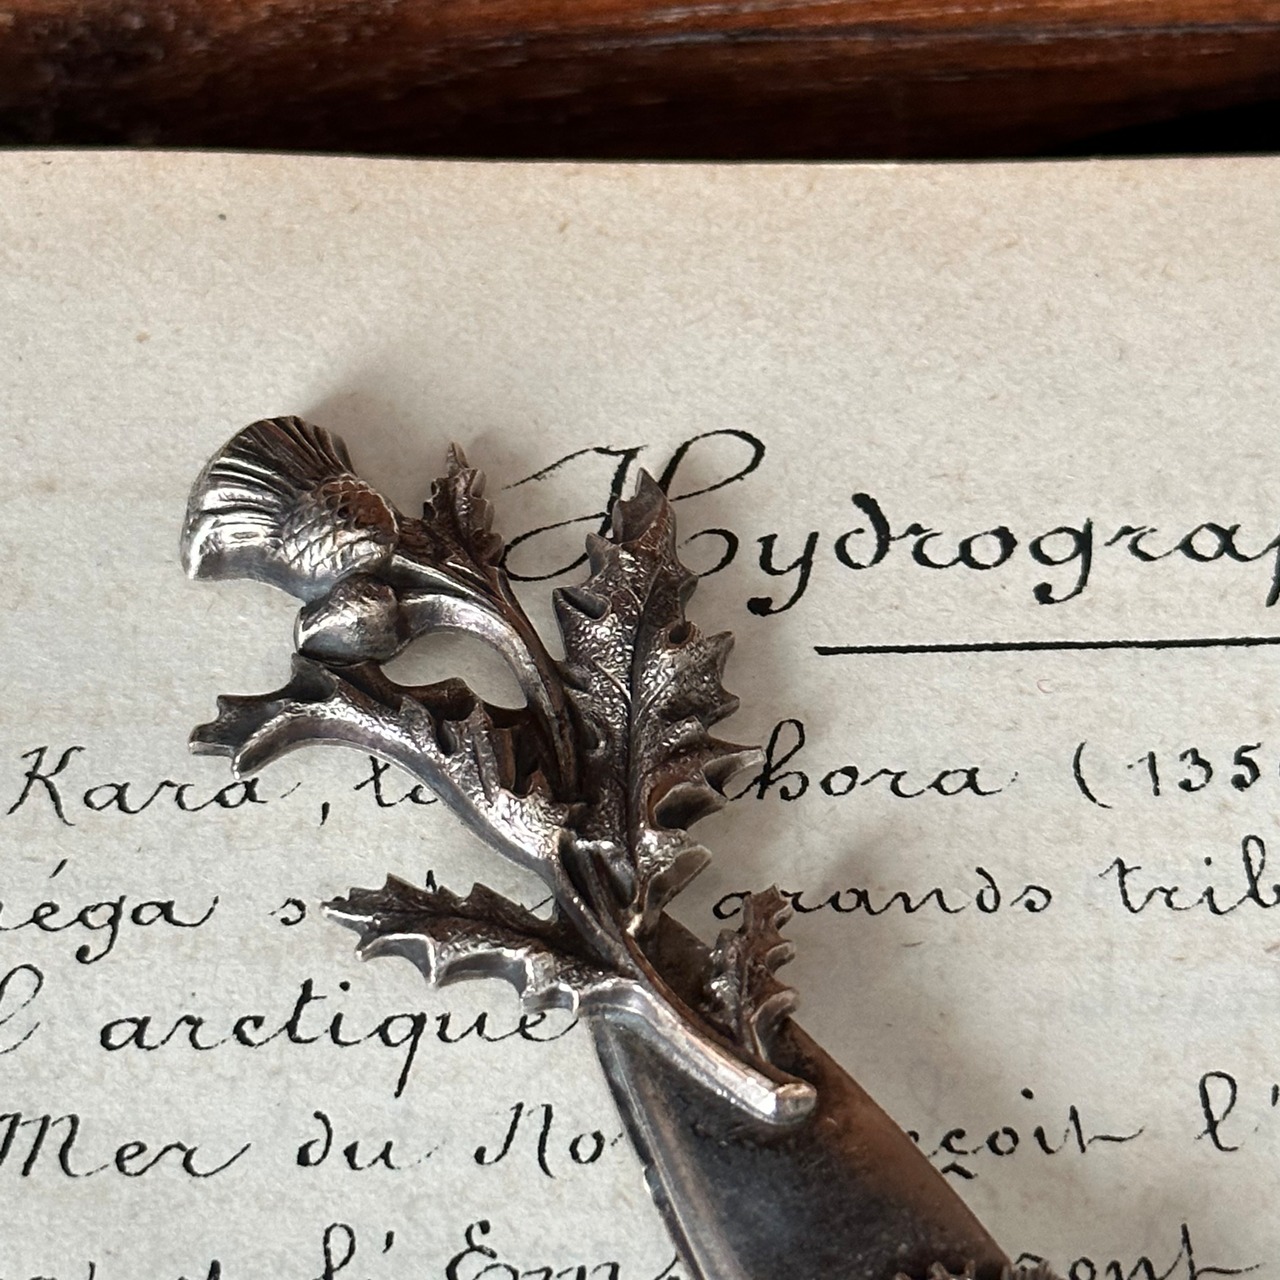 Hydrograp
Kara, la chora (135
éga s grands trib
l arctique
Mer du No çoit l'
l'Ems ont